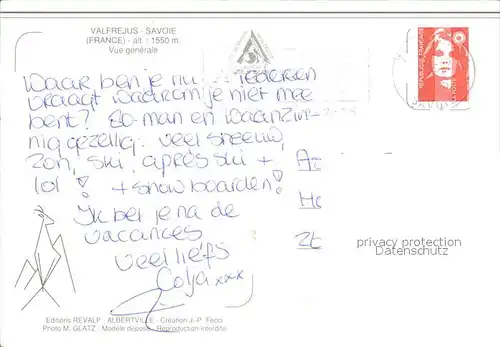 VALFREJUS - SAVOIE
(FRANCE) - alt : 1550 m.
Vue générale
Waar ben je nu ... iedereen
vraagt waarom je niet mee
bent? 80 man en waanzin-
nig gezellig. veel sneeuw,
zon, ski, après ski +
lol! + snowboarden!
Ik bel je na de
vacances
veel liefs
Colja xxx
Az
Ho
Zt
REPUBLIQUE FRANÇAISE
privacy protection
Datenschutz
Editions REVALP - ALBERTVILLE - Création J.-P. Fecci
Photo M. GLATZ - Modèle déposé - Reproduction interdite